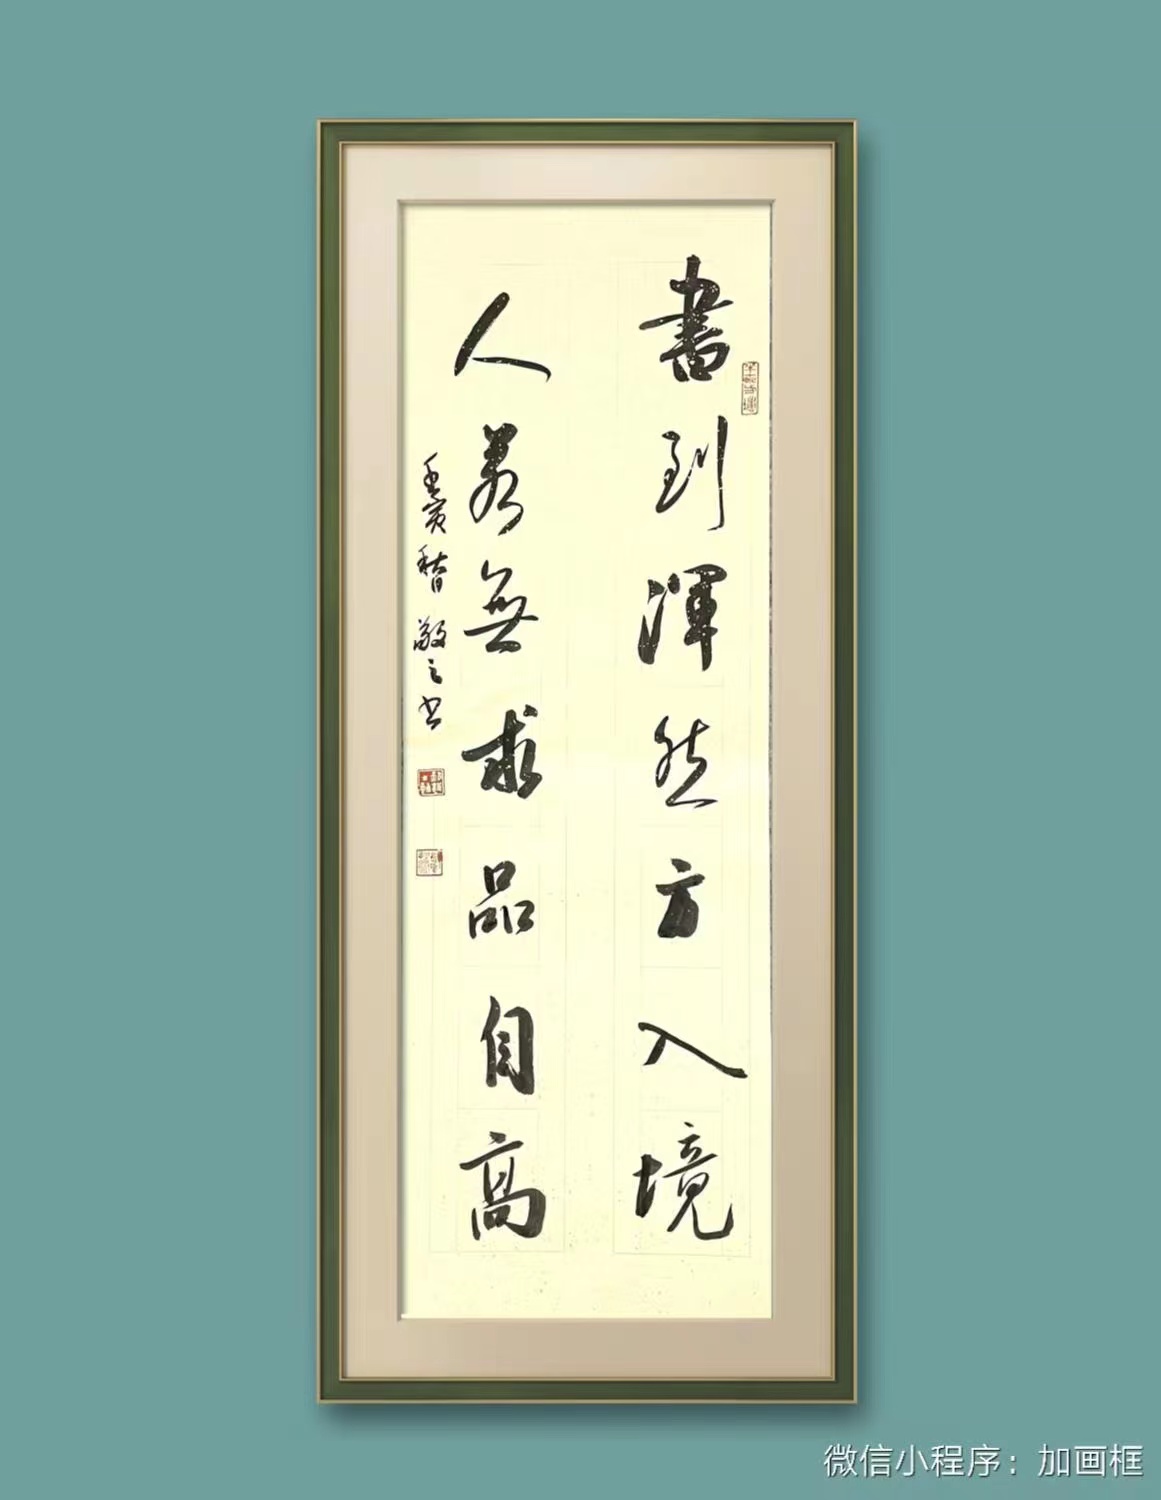 書到渾然方入境
人若無求品自高
壬寅秋月敬之书
微信小程序：加画框